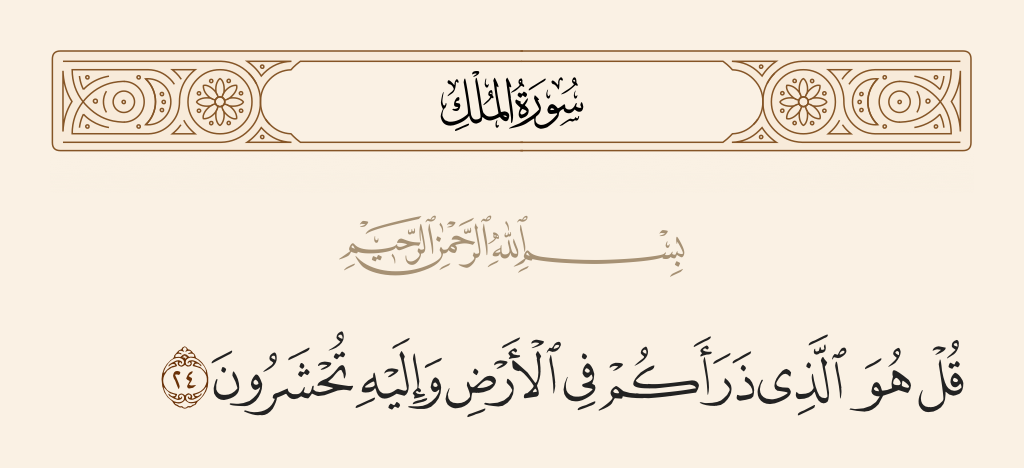 سُورَةُ الْمُلْكِ
بِسْمِ ٱللَّهِ ٱلرَّحْمَٰنِ ٱلرَّحِيمِ
قُلْ هُوَ ٱلَّذِى ذَرَأَكُمْ فِى ٱلْأَرْضِ وَإِلَيْهِ تُحْشَرُونَ ٢٤